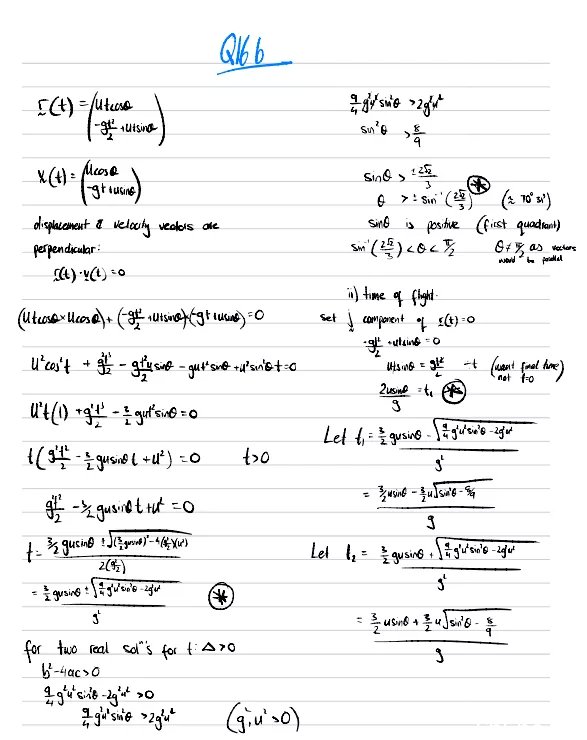 Q16 b
r(t) = (Utcosθ
-gt²/2 + utsinθ)
v(t) = (Ucosθ
-gt + usinθ)
displacement & velocity vectors are
perpendicular:
r(t) · v(t) = 0
(Utcosθ × Ucosθ) + (-gt²/2 + utsinθ)(-gt + usinθ) = 0
U²cos²t + g²t³/2 - gt²u/2 sinθ - gut² sinθ + u² sin²θ t = 0
U²t(1) + g²t³/2 - 3/2 gut² sinθ = 0
t(g²t²/2 - 3/2 gusinθ t + u²) = 0 t>0
g²t²/2 - 3/2 gusinθ t + u² = 0
t = (3/2 gusinθ ± √((3/2 gusinθ)² - 4(g²/2)(u²))) / 2(g²/2)
= (3/2 gusinθ ± √(9/4 g²u² sin²θ - 2g²u²)) / g² *
for two real solⁿs for t: Δ > 0
b² - 4ac > 0
9/4 g²u² sin²θ - 2g²u² > 0
9/4 g²u² sin²θ > 2g²u² (g², u² > 0)
9/4 g²u² sin²θ > 2g²u²
sin²θ > 8/9
sinθ > ± 2√2/3 *
θ > ± sin⁻¹(2√2/3) (≈ 70° 31')
sinθ is positive (first quadrant)
sin⁻¹(2√2/3) < θ < π/2 θ ≠ π/2 as vectors
would be parallel
ii) time of flight.
set j component of r(t) = 0
-gt²/2 + utsinθ = 0
utsinθ = gt²/2 -t (want final time)
not t=0
2usinθ/g = t₁ *
Let t₁ = (3/2 gusinθ - √(9/4 g²u² sin²θ - 2g²u²)) / g²
= (3/2 usinθ - 3/2 u√(sin²θ - 8/9)) / g
Let t₂ = (3/2 gusinθ + √(9/4 g²u² sin²θ - 2g²u²)) / g²
= (3/2 usinθ + 3/2 u√(sin²θ - 8/9)) / g